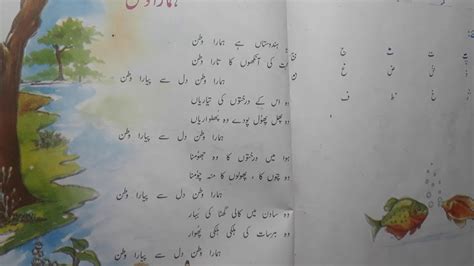 ہمارا وطن
یہ ہندوستاں ہے ہمارا وطن
محبت کی آنکھوں کا تارا وطن
ہمارا وطن دل سے پیارا وطن
وہ اس کے درختوں کی تیاریاں
وہ پھل پھول پودے وہ پھلواریاں
ہمارا وطن دل سے پیارا وطن
ہوا میں درختوں کا وہ جھومنا
وہ پتوں کا ، پھولوں کا منہ چومنا
ہمارا وطن دل سے پیارا وطن
وہ ساون میں کالی گھٹا کی بہار
وہ برسات کی ہلکی ہلکی پھوار
ہمارا وطن دل سے پیارا وطن
پ ت ث ج
غ ط ف